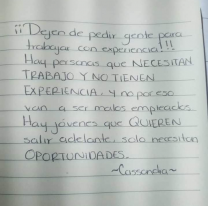 ¡¡Dejen de pedir gente para
trabajar con experiencia!!!
Hay personas que NECESITAN
TRABAJO Y NO TIENEN
EXPERIENCIA. Y no por eso
van a ser malos empleados.
Hay jóvenes que QUIEREN
salir adelante, solo necesitan
OPORTUNIDADES.
~Cassandra~